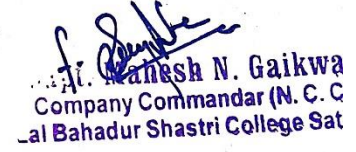 Mahesh N. Gaikwa
Company Commandar (N. C. C
al Bahadur Shastri College Sat